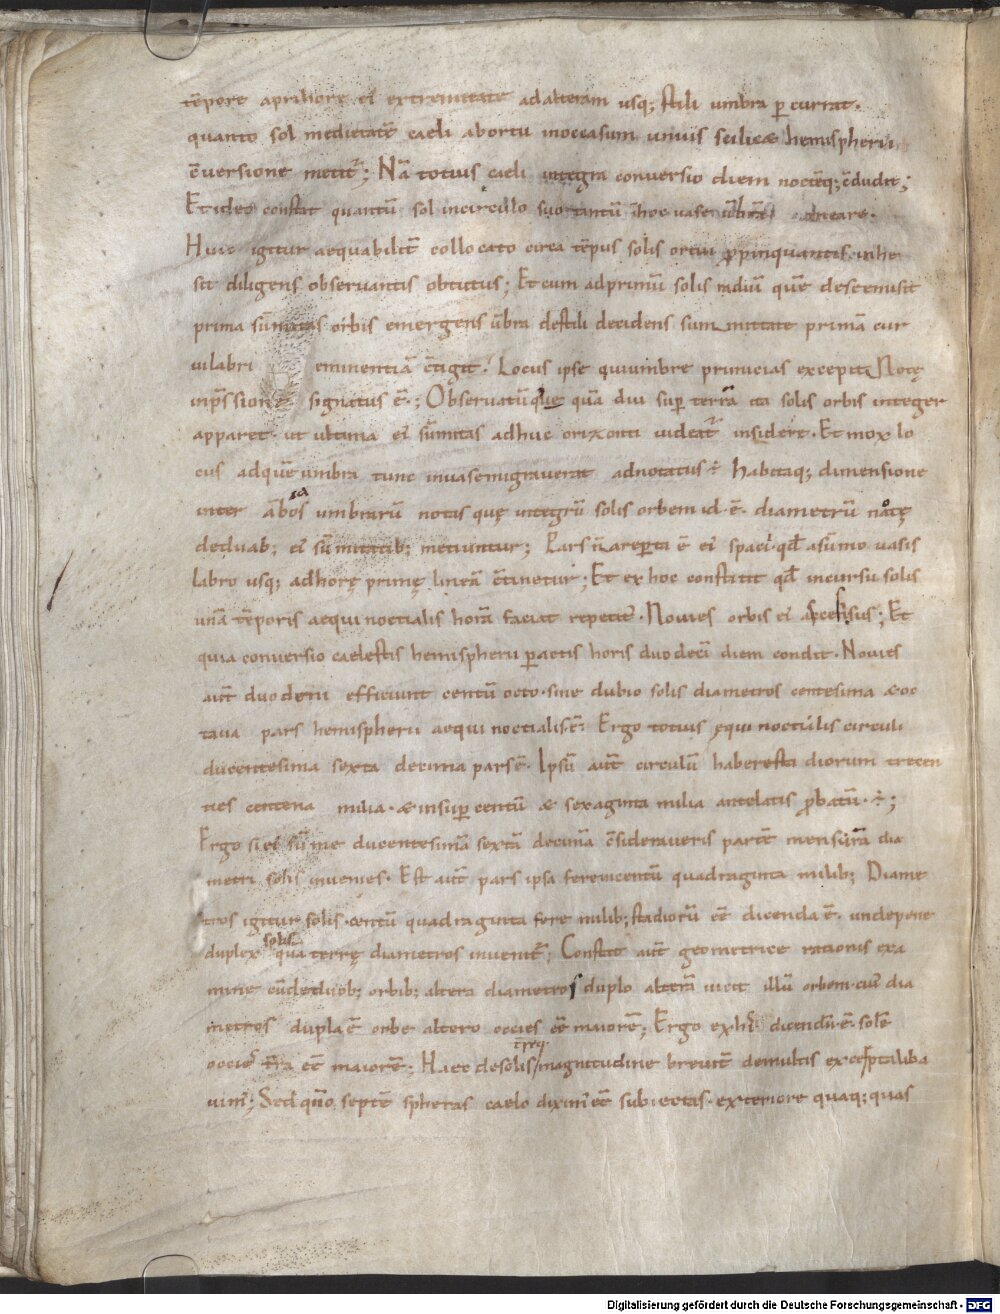 tēpore apriliore ei extremitate ad alteram usq; stili umbra ꝑ currat.
quanto sol medietatē caeli abortu inoccasum unius scilicæ hemispherii
c̄versione metit᷑; Nā totius caeli integra conversio diem noctēq; c̄cludit;
Et ideo constat quantū sol incirculo suo tantū ī hoc vase ūbrā meare.
Huic igitur aequabilit̄ collocato circa tēpus solis ortui ꝓpinquantis. inhe
sit diligens observantis obtutus; Et cum adprimū solis radiū quē descemisit
prima sūmitas orbis emergens ūbra destili decidens summitate primā cur
vilabri eminentiā c̄tigit. Locus ipse qui umbre primicias excepit Notę
inp̄ssione signatus ē.; Observatūque quādiu suꝑ terrā ita solis orbis integer
apparet. ut ultima ei sūmitas adhuc orizonti videat᷑ insidere. Et mox lo
cus adquē umbra tunc invase migraverat adnotatus ÷ habitaq; dimensione
inter ābos umbrarū notas quę integrū solis orbem id.ē. diametrū natę
deduab; ei sūmitatib; metiuntur; Pars ūa reꝑta ē ei spacii qd̄ asūmo vasis
labro usq; adhorę primę lineā c̄tinetur; Et ex hoc constitit qd̄ incursu solis
unā tēporis aequinoctialis horā faciat repetit᷑. Novies orbis ei accessus; Et
quia conversio caelestis hemispherii ꝑactis horis duodecī diem condit. Novies
aut̄ duodeni efficiunt centū octo. sine dubio solis diametros centesima æ oc
tava pars hemispherii aequinoctialis.ē. Ergo totius ęquinoctialis circuli
ducentesima sexta decima pars ē. Ipsū aut̄ circulū habere stadiorum trecen
ties centena milia. æ insuꝑ centū æ sexaginta milia antelatis ꝓbatū.÷;
Ergo si ei sūme ducentesimā sextā decimā c̄sideraveris partē mensurā dia
metri solis invenies. Est aut̄ pars ipsa fere incentū quadraginta milib; Diame
tros igitur solis. centū quadraginta fere milib; stadiorū eē dicenda ē. unde pene
solis
duplex qua terrę diametros invenit᷑; Constat aut̄ geometrice rationis exa
mine cū de duob; orbib; altera diametros duplo alterā vicit illū orbem cui᷒ dia
metros dupla ē orbe altero occies eē maiorē; Ergo ex hi᷒ dicendū.ē. solē
t̄rrę.
occie᷒ t̄rra eē maiorē; Haec de solis / magnitudine brevit̄ de multis excerpta liba
vim᷒; Sed qm̄o septē spheras caelo dixim᷒ eē subiectas. exteriore quaq; quas